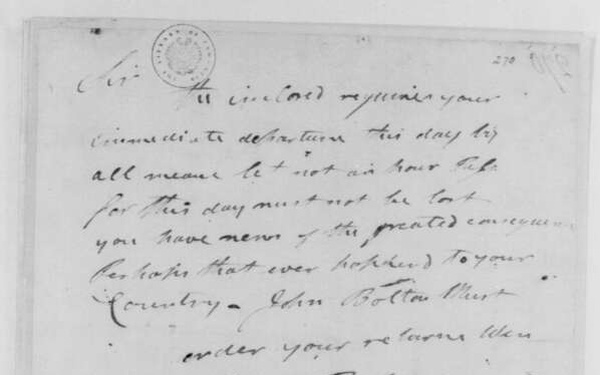 270
Sir
The inclosed requires your
immediate departure this day by
all means let not an hour Pass
for this day must not be lost
you have news of the greatest consequence
Perhaps that ever happend to your
Country - John Bolton Must
order your returne When